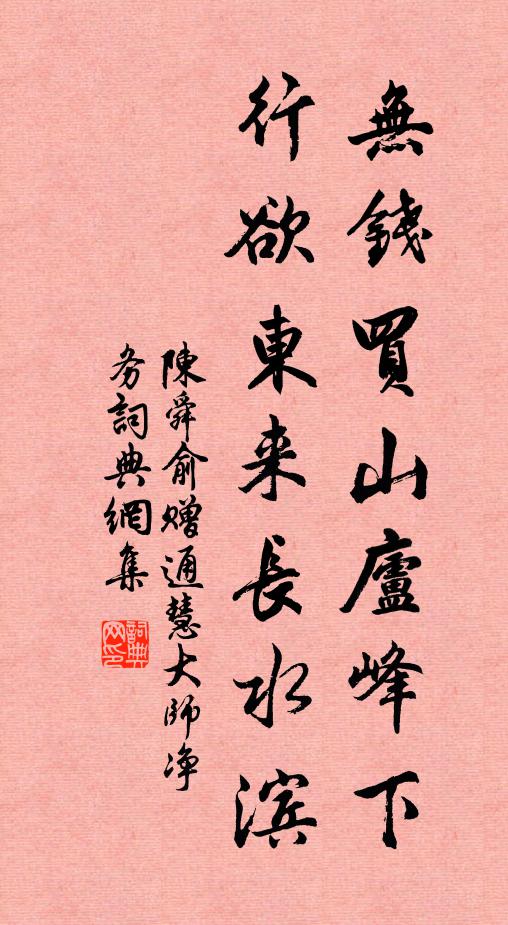 無錢買山廬峰下
行欲東来長水滨
陳舜俞赠通慧大師净
务詞典網集
詞典
网印